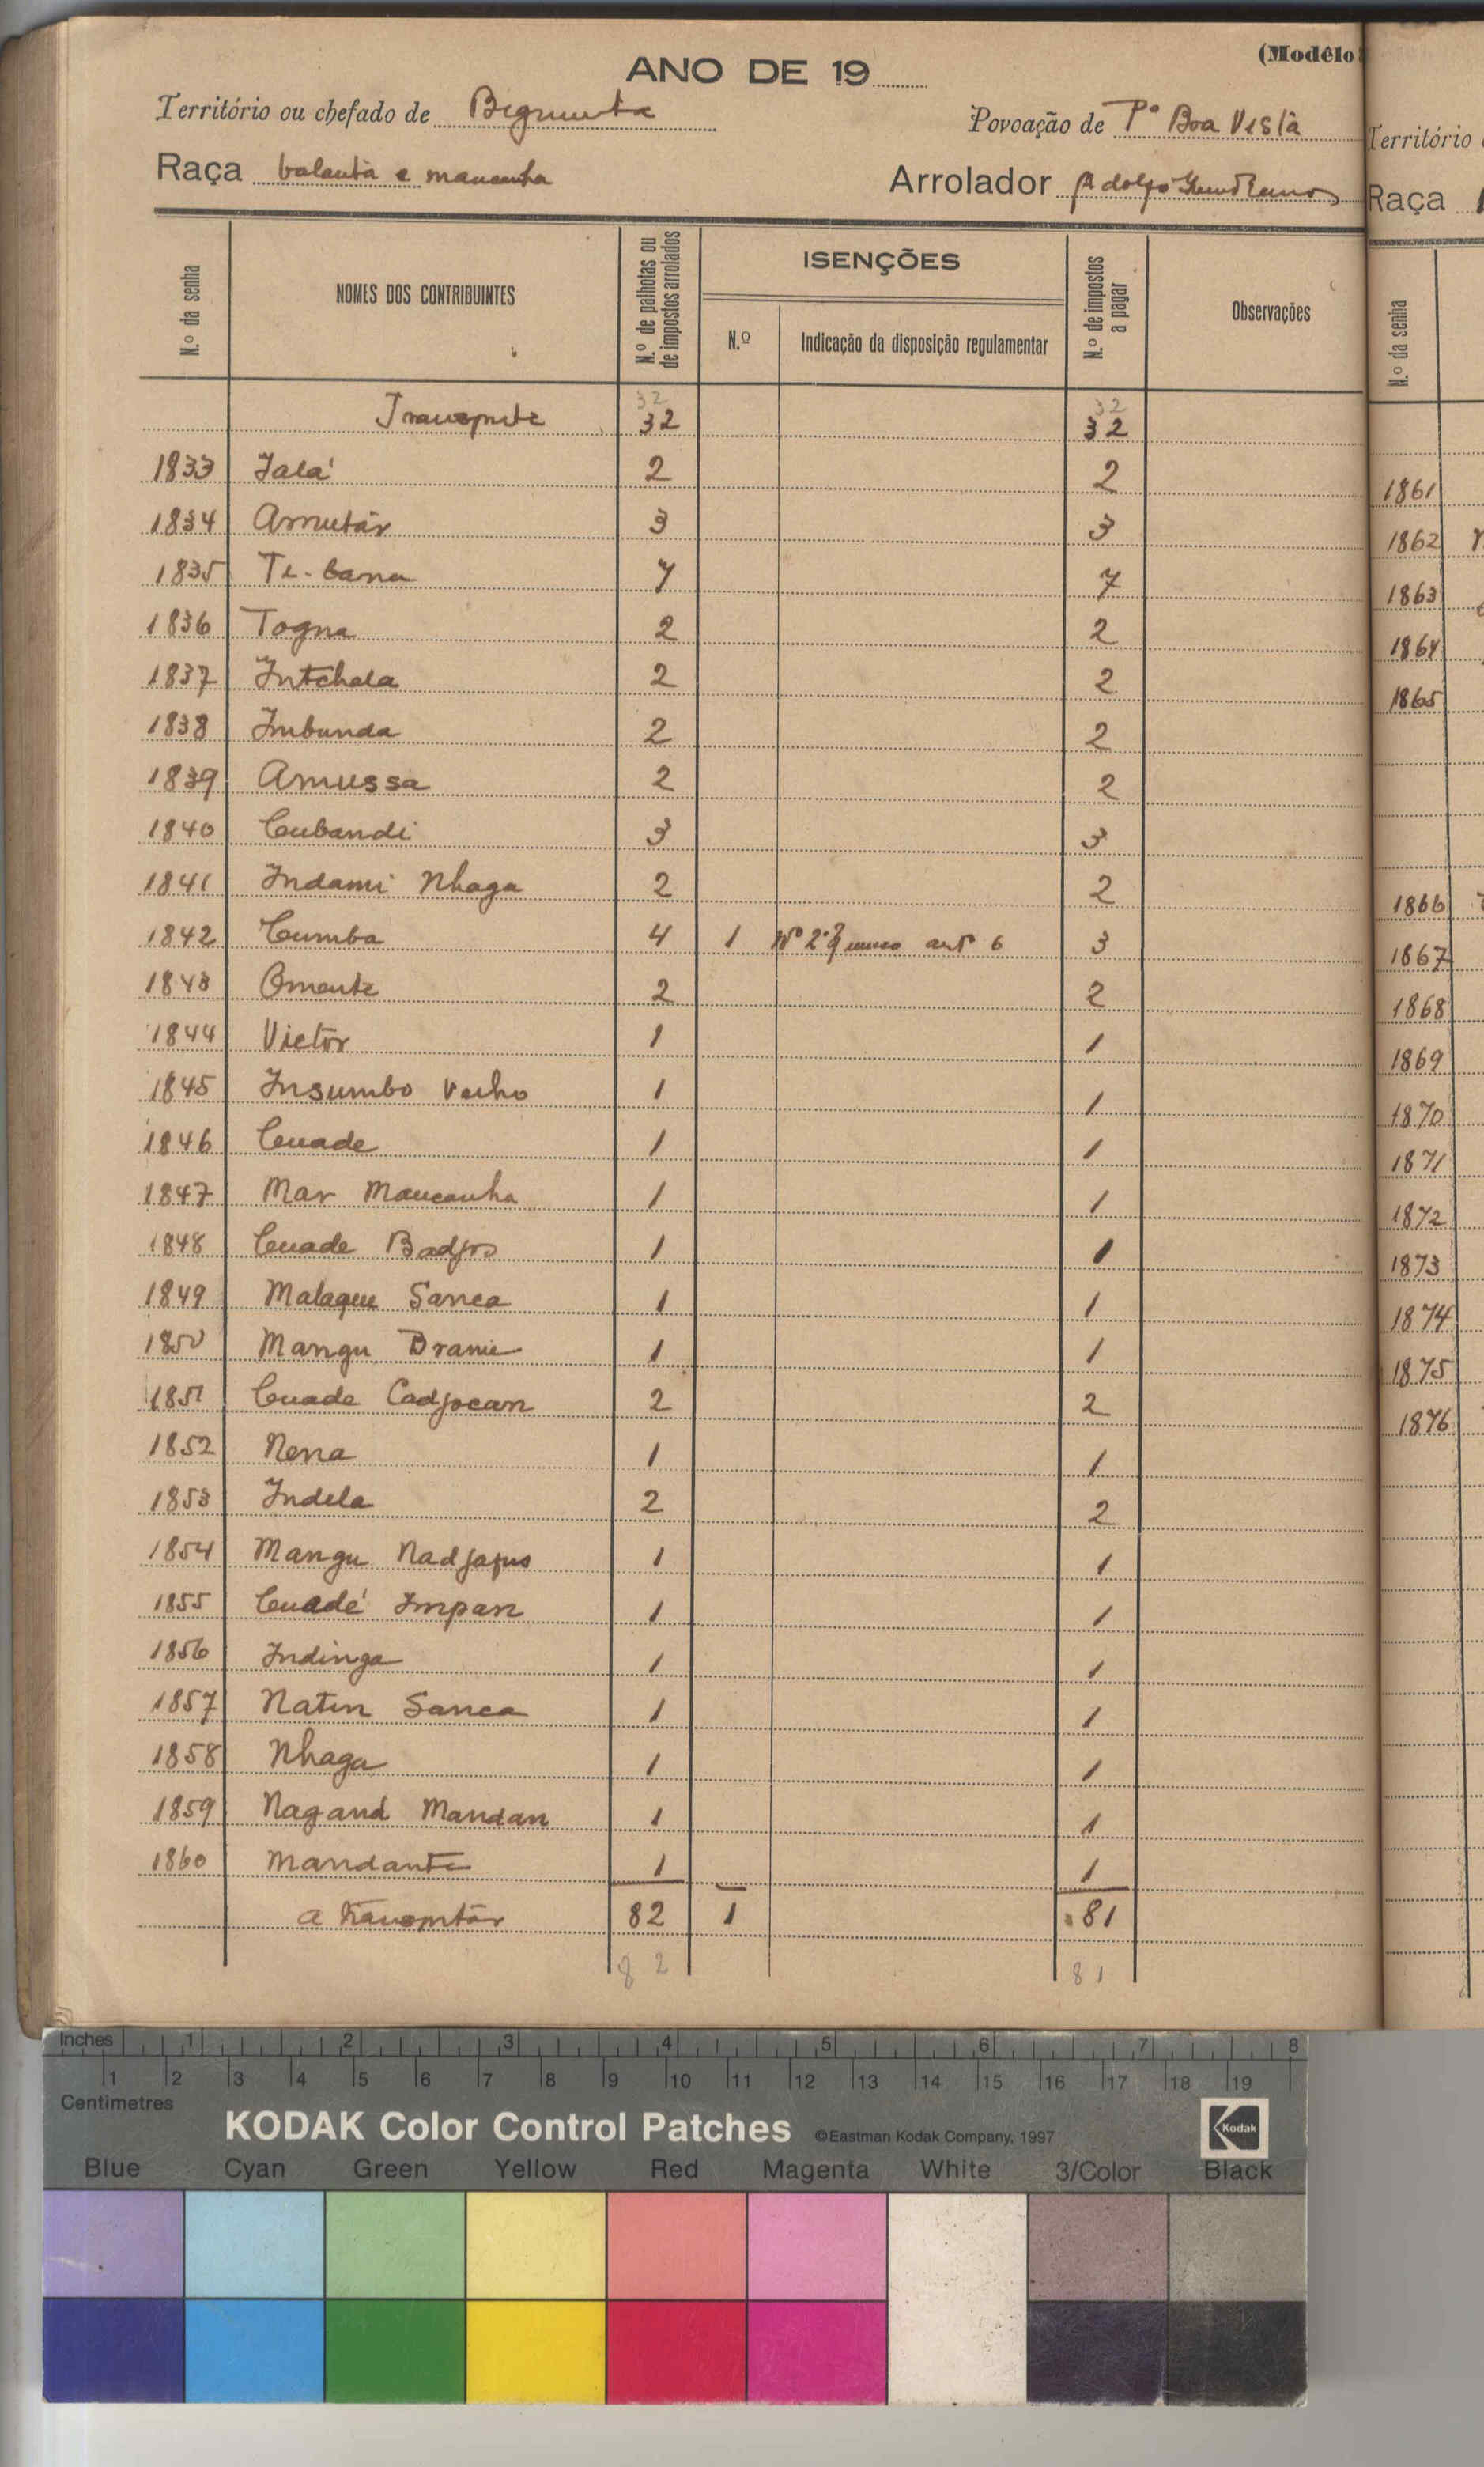 (Modêlo
ANO DE 19
Território ou chefado de
Povoação de Pº Boa Vista
Raça balanta e mancanha
Arrolador Adolfo
N.º da senha
NOMES DOS CONTRIBUINTES
N.º de palhotas ou de impostos arrolados
ISENÇÕES
N.º
Indicação da disposição regulamentar
N.º de impostos a pagar
Observações
32 32
Transporte 32 32
1833 Jalá 2 2
1834 Amutár 3 3
1835 Te-bana 7 7
1836 Togna 2 2
1837 Intchala 2 2
1838 Imbunda 2 2
1839 Amussa 2 2
1840 Cubandi 3 3
1841 Indami Nhaga 2 2
1842 Cumba 4 1 Nº 2º § unico artº 6 3
1843 Omente 2 2
1844 Victor 1 1
1845 Insumbo Velho 1 1
1846 Cuade 1 1
1847 Mar Mancanha 1 1
1848 Cuade Badjro 1 1
1849 Malaque Sanca 1 1
1850 Mangu Brame 1 1
1851 Cuade Cadjocan 2 2
1852 Nena 1 1
1853 Indela 2 2
1854 Mangu 1 1
1855 Cuadé Impan 1 1
1856 Indinga 1 1
1857 Natin Sanca 1 1
1858 Nhaga 1 1
1859 Nagand Mandan 1 1
1860 Mandante 1 1
A transportár 82 1 81
82 81
Território
Raça
N.º da senha
1861
1862
1863
1864
1865
1866
1867
1868
1869
1870
1871
1872
1873
1874
1875
1876
Inches 1 2 3 4 5 6 7 8
1 2 3 4 5 6 7 8 9 10 11 12 13 14 15 16 17 18 19
Centimetres
KODAK Color Control Patches ©Eastman Kodak Company, 1997 Kodak
Blue Cyan Green Yellow Red Magenta White 3/Color Black